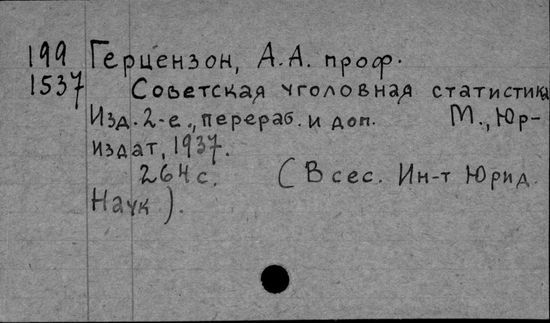 199 Герцензон, А.А. проф.
1537 Советская уголовная статистика
Изд. 2-е., перераб. и доп. М., Юр-
издат, 1937.
264 с. (Всес. Ин-т Юрид.
Наук).